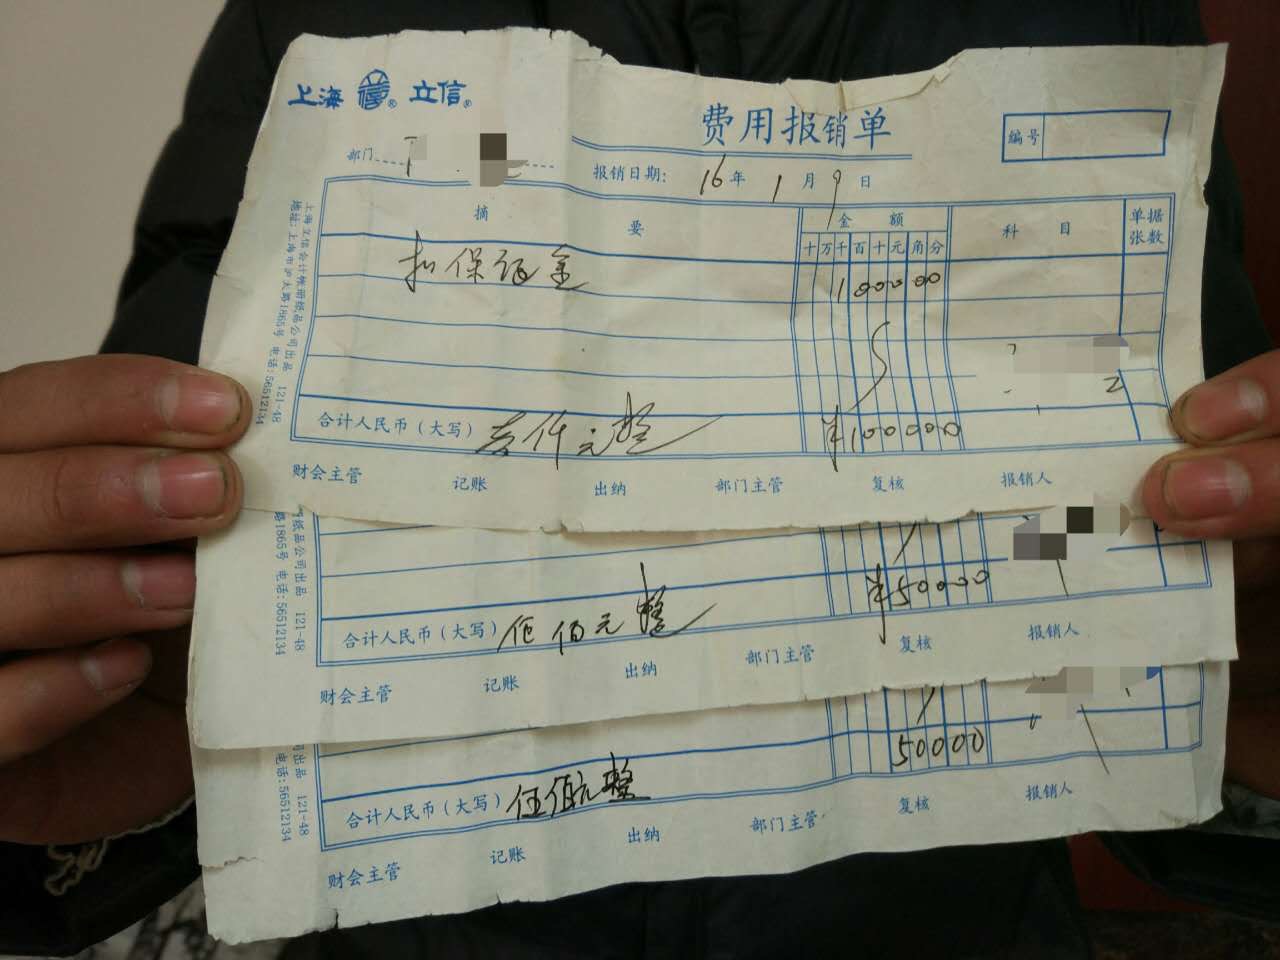 上海 信® 立信®
费用报销单
编号
部门
报销日期: 16年 1月 9日
摘 要
金 额
科 目
单据张数
十 万 千 百 十 元 角 分
扣保证金
1000 00
合计人民币（大写） 壹仟元整
¥1000 00
财会主管 记账 出纳 部门主管 复核 报销人
上海立信会计帐册纸品公司出品 121-48
地址:上海市沪太路1865号 电话:56512134
合计人民币（大写） 伍佰元整
¥50000
财会主管 记账 出纳 部门主管 复核 报销人
纸品公司出品 121-48
路1865号 电话:56512134
合计人民币（大写） 伍佰元整
50000
财会主管 记账 出纳 部门主管 复核 报销人
司出品 121-48
电话:56512134